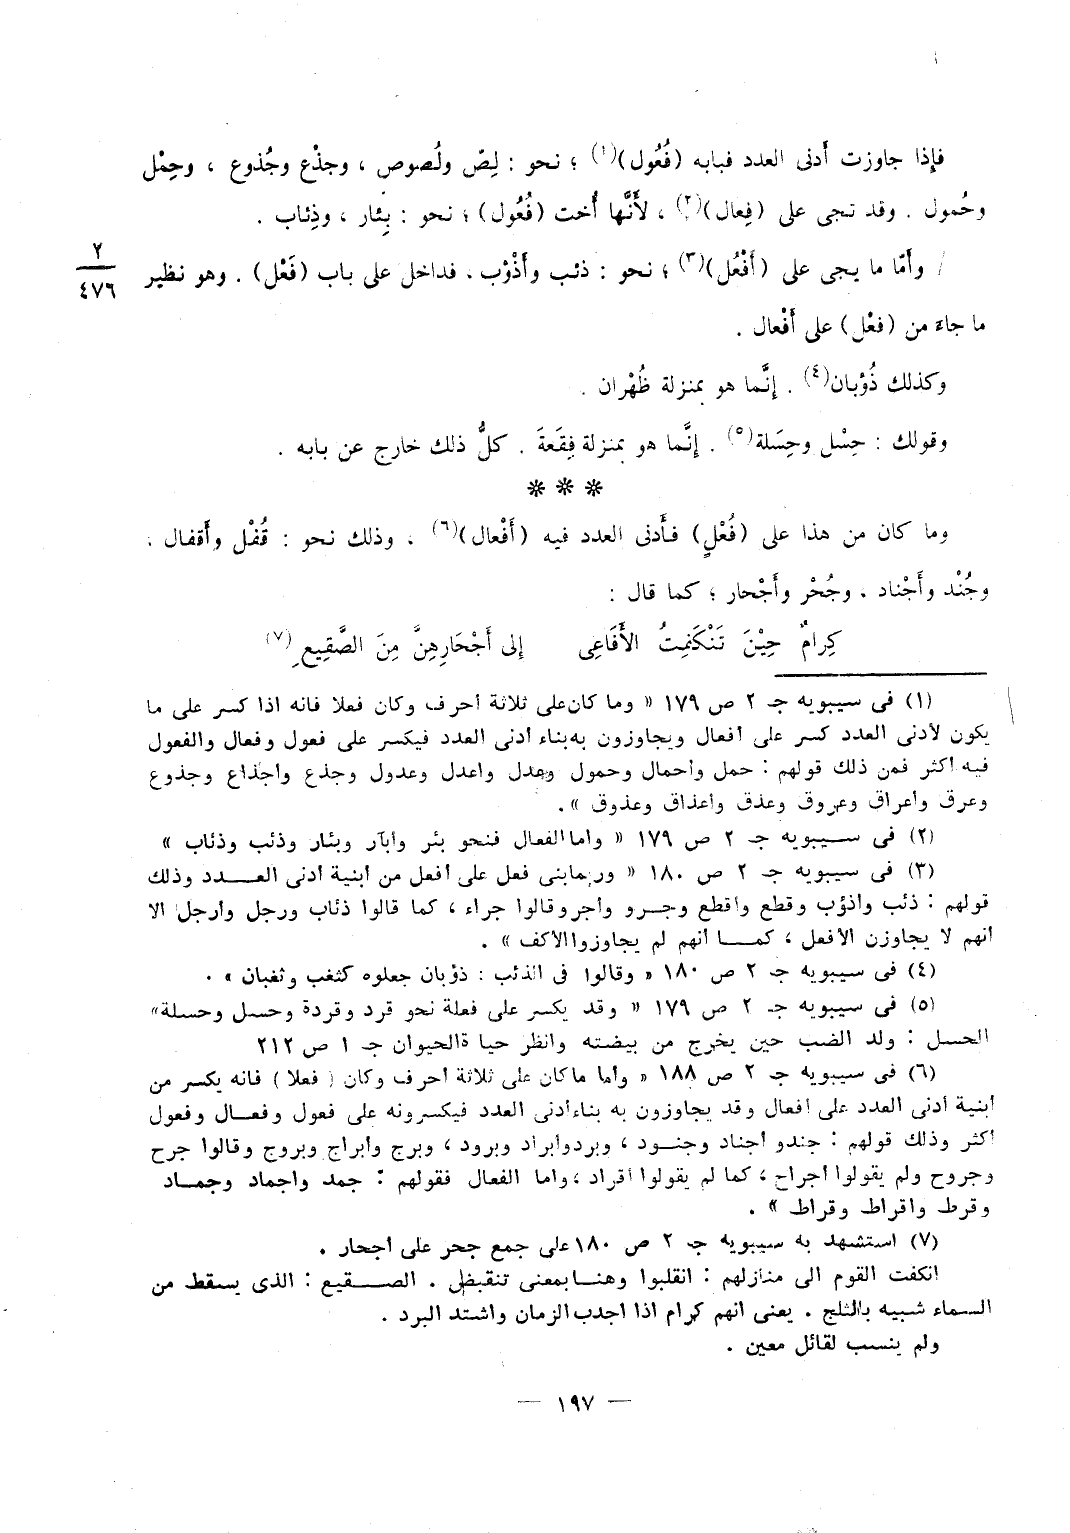 فإذا جاوزت أَدنى العدد فبابه (فُعُول)(١) ؛ نحو : لِصّ ولُصوص ، وجذْع وجُذوع ، وحِمْل
وحُمول . وقد تجى على (فِعال)(٢) ، لأَنَّها أُخت (فُعُول) ؛ نحو : بِئار ، وذِئاب .
/ وأَمّا ما يجى على (أَفْعُل)(٣) ؛ نحو : ذئب وأَذْوُب ، فداخل على باب (فَعْل) . وهو نظير
٢
٤٧٦
ما جاءَ من (فعْل) على أَفْعال .
وكذلك ذُوْبان(٤) . إِنَّما هو بمنزلة ظُهْران .
وقولك : حِسْل وحِسَلة(٥) . إِنَّما هو بمنزلة فِقَعةَ . كلُّ ذلك خارج عن بابه .
* * *
وما كان من هذا على (فُعْلٍ) فأَدنى العدد فيه (أَفْعال)(٦) ، وذلك نحو : قُفْل وأَقفال ،
وجُنْد وأَجْناد ، وجُحْر وأَجْحار ؛ كما قال :
كِرامٌ حِيْنَ تَنْكَفِتُ الأَفَاعِى إلى أَجْحَارِهِنَّ مِنَ الصَّقِيعِ(٧)
(١) فى سيبويه جـ ٢ ص ١٧٩ « وما كان على ثلاثة أحرف وكان فعلا فانه اذا كسر على ما
يكون لأدنى العدد كسر على أفعال ويجاوزون به بناء أدنى العدد فيكسر على فعول وفعال والفعول
فيه أكثر فمن ذلك قولهم : حمل وأحمال وحمول وعدل واعدل وعدول وجذع واجذاع وجذوع
وعرق وأعراق وعروق وعذق وأعذاق وعذوق » .
(٢) فى سيبويه جـ ٢ ص ١٧٩ « وأما الفعال فنحو بئر وأبآر وبئار وذئب وذئاب »
(٣) فى سيبويه جـ ٢ ص ١٨٠ « وربما بنى فعل على أفعل من أبنية أدنى العدد وذلك
قولهم : ذئب واذؤب وقطع واقطع وجرو وأجر وقالوا جراء ، كما قالوا ذئاب ورجل وأرجل الا
أنهم لا يجاوزن الأفعل ، كما أنهم لم يجاوزوا الأكف » .
(٤) فى سيبويه جـ ٢ ص ١٨٠ « وقالوا فى الذئب : ذؤبان جعلوه كثغب وثغبان » .
(٥) فى سيبويه جـ ٢ ص ١٧٩ « وقد يكسر على فعلة نحو قرد وقردة وحسل وحسلة»
الحسل : ولد الضب حين يخرج من بيضته وانظر حياة الحيوان جـ ١ ص ٢١٢
(٦) فى سيبويه جـ ٢ ص ١٨٨ « وأما ما كان على ثلاثة أحرف وكان ( فعلا ) فانه يكسر من
أبنية أدنى العدد على أفعال وقد يجاوزون به بناء أدنى العدد فيكسرونه على فعول وفعال وفعول
أكثر وذلك قولهم : جند و أجناد وجنود ، وبرد وابراد وبرود ، وبرج وأبراج وبروج وقالوا جرح
وجروح ولم يقولوا أجراح ، كما لم يقولوا أقراد ، وأما الفعال فقولهم : جمد واجماد وجماد
وقرط واقراط وقراط » .
(٧) استشهد به سيبويه جـ ٢ ص ١٨٠ على جمع جحر على أجحار .
انكفت القوم الى منازلهم : انقلبوا وهنا بمعنى تنقبض . الصقيع : الذى يسقط من
السماء شبيه بالثلج . يعنى انهم كرام اذا اجدب الزمان واشتد البرد .
ولم ينسب لقائل معين .
— ١٩٧ —